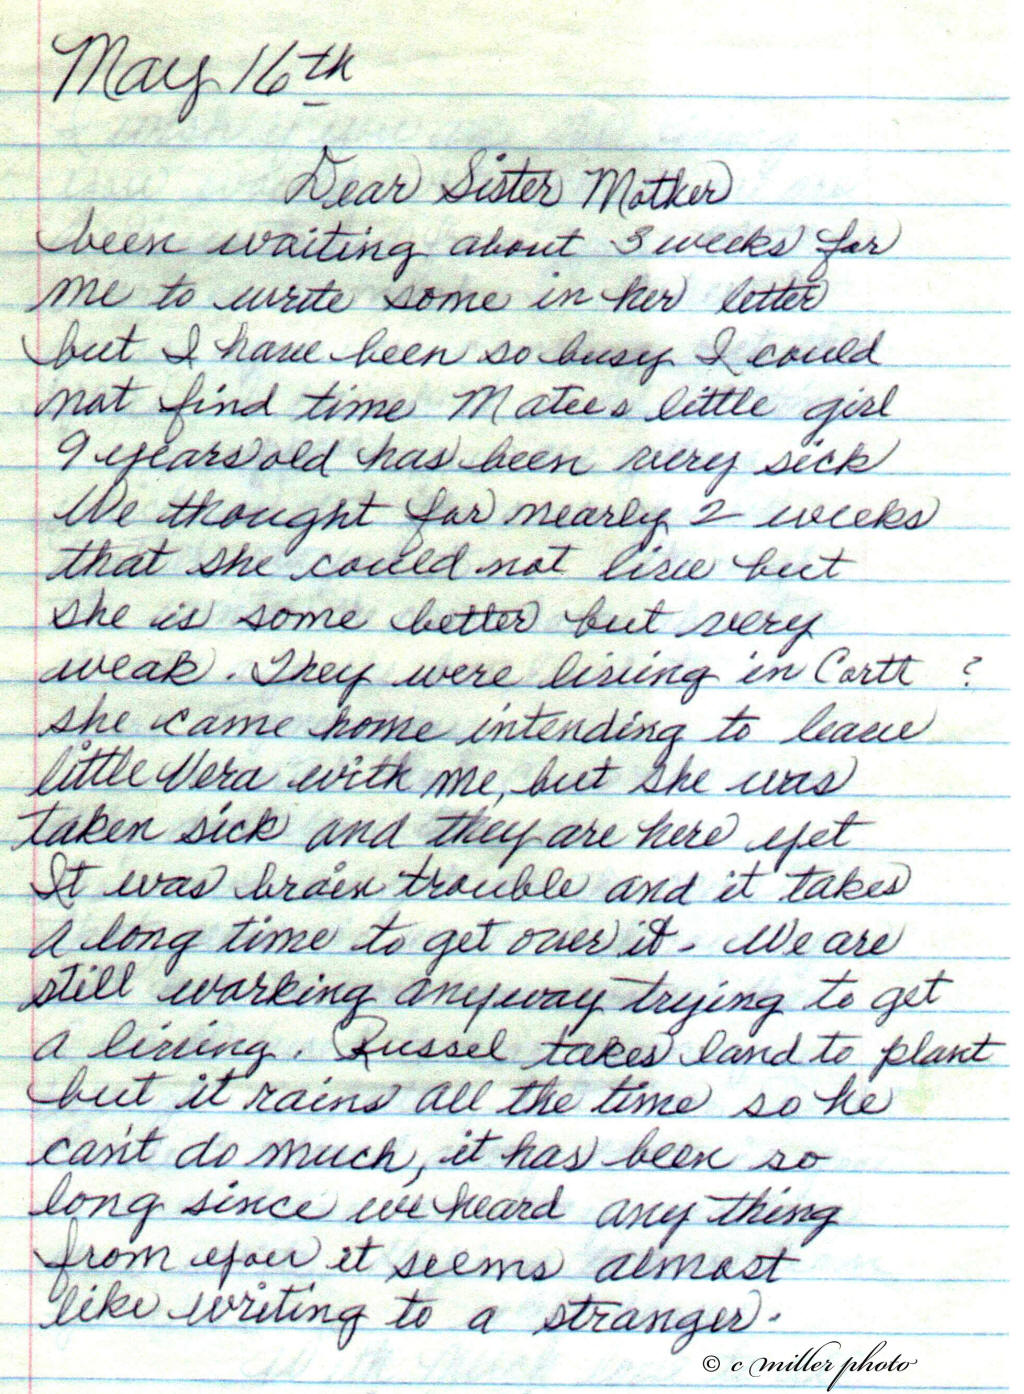 May 16th
Dear Sister Mother
been waiting about 3 weeks for
me to write some in her letter
but I have been so busy I could
not find time Matees little girl
9 years old has been very sick
We thought for nearly 2 weeks
that she could not live but
she is some better but very
weak. They were living in Cartt ?
she came home intending to leave
little Vera with me, but she was
taken sick and they are here yet
It was brain trouble and it takes
a long time to get over it. We are
still working anyway trying to get
a living. Russel takes land to plant
but it rains all the time so he
can't do much, it has been so
long since we heard any thing
from you it seems almost
like writing to a stranger.
© c miller photo